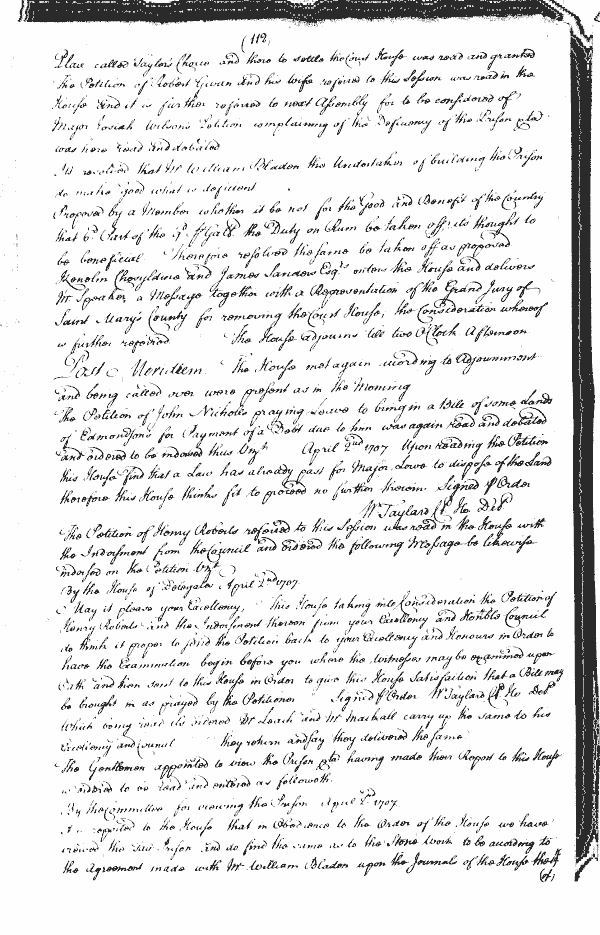 (112)
Place called Taylors Choice and there to settle the Court House was read and granted
The Petition of Robert Gwan and his wife referred to this Session was read in the
House and it is further referred to next Assembly for to be considered of
Major Josiah Wilson's Petition complaining of the Deficiency of the Prison
was here read and debated
It's resolved that Mr William Bladen the Undertaker of building the Prison
do make good what is deficient
Proposed by a Member whether it be not for the Good and Benefit of the Country
that 6d Part of the 9d p Gall. the Duty on Rum be taken off, its thought to
be beneficial Therefore resolved the same be taken off as proposed
Kenelm Cheseldine and James Sanders Esqrs enters the House and delivers
Mr Speaker a Message together with a Representation of the Grand Jury of
Saint Mary's County for removing the Court House, the Consideration whereof
is further referred The House adjourns till two O'Clock Afternoon
Post Meridiem The House met again according to Adjournment
and being called over were present as in the Morning
The Petition of John Nicholls praying Leave to bring in a Bill of some Lands
of Edmondson's for Payment of a Debt due to him was again read and debated
and ordered to be indorsed thus Vizt April 2nd 1707 Upon reading the Petition
this House find that a Law has already past for Major Lowe to dispose of the Land
therefore this House thinks fit to proceed no further therein Signed p Order
W Taylard Cl Ho. Del
The Petition of Henry Roberts referred to this Session was read in the House with
the Indorsment from the Council and ordered the following Message be likewise
indorsed on the Petition Vizt
By the House of Delegates April 2nd 1707
May it please your Excellency, This House taking into Consideration the Petition of
Henry Roberts and the Indorsment thereon from your Excellency and Honble Council
do think it proper to send the Petition back to your Excellency and Honours in Order to
have the Examination begin before you where the Witnesses may be examined upon
Oath and then sent to this House in Order to give this House Satisfaction that a Bill may
be brought in as prayed by the Petitioner Signed p Order W Taylard Cl Ho Del
Which being read its ordered Mr Leach and Mr Mackall carry up the same to his
Excellency and Council they return and say they delivered the same
The Gentlemen appointed to view the Prison having made their Report to this House
is ordered to be read and entered as followeth.
By the Committee for viewing the Prison April 2d 1707.
It is reported to the House that in Obedience to the Order of the House we have
viewed the said Prison and do find the same as to the Stone Work to be according to
the Agreement made with Mr William Bladen upon the Journals of the House